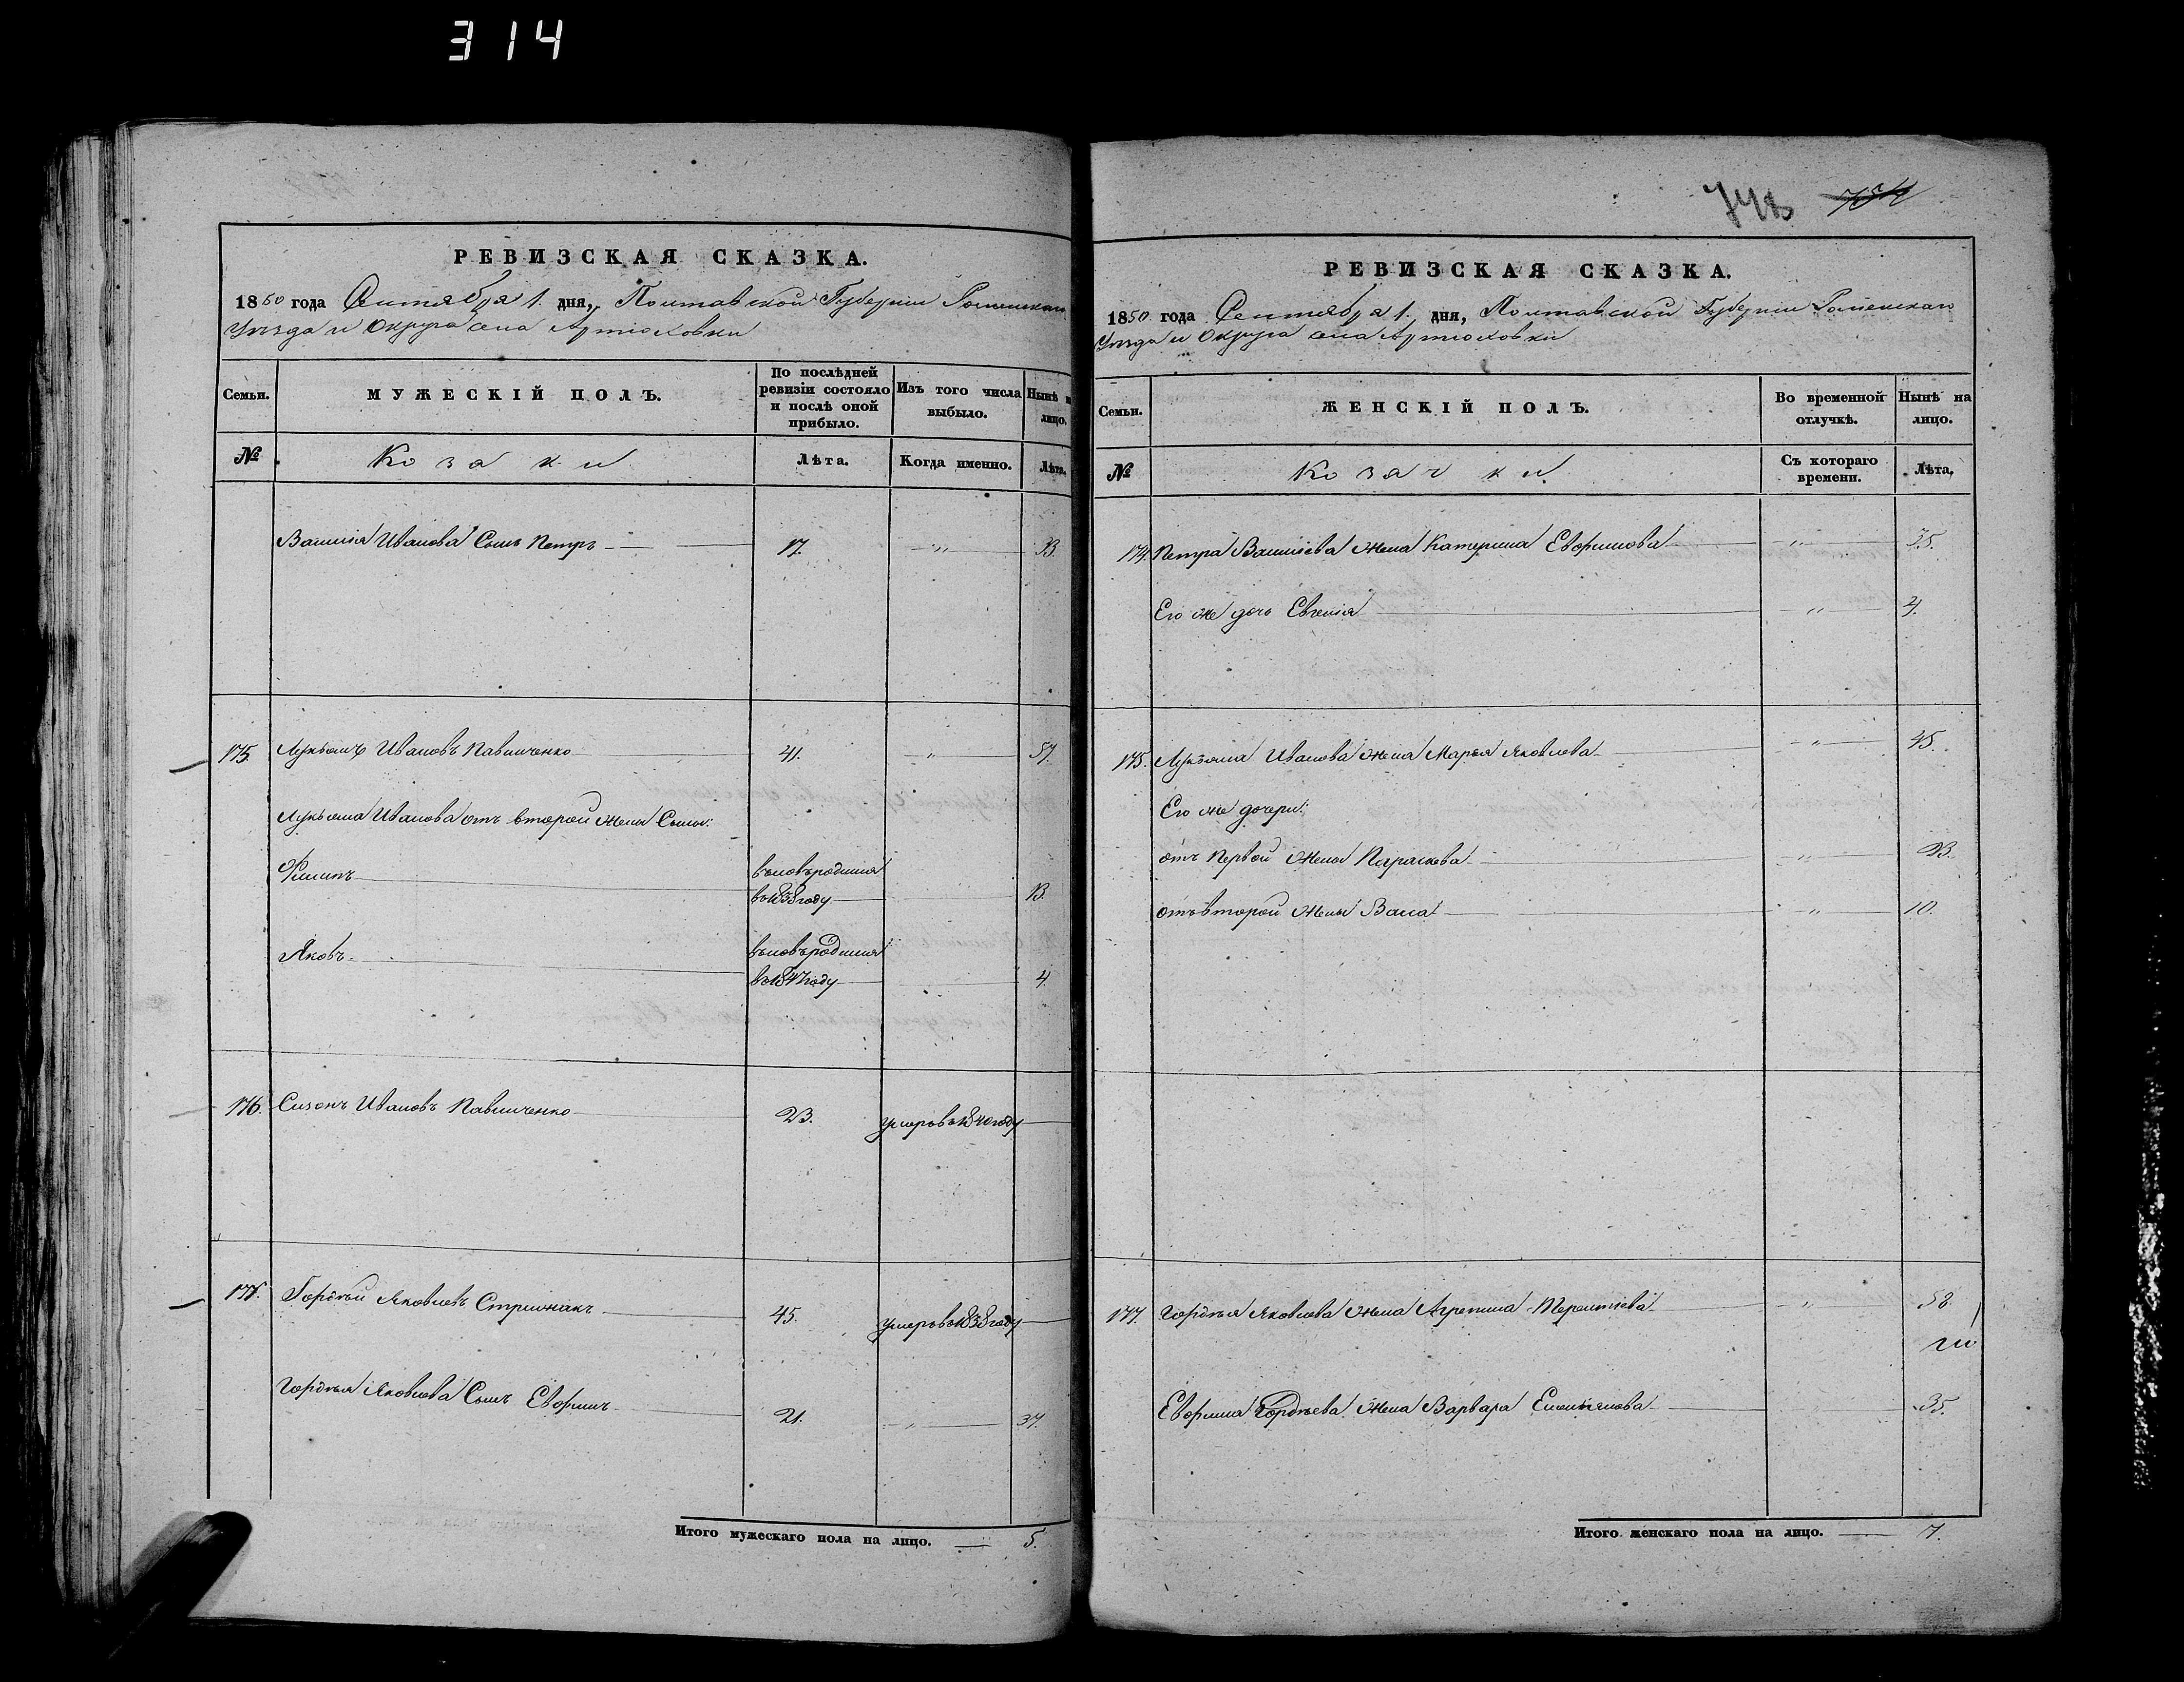 314
РЕВИЗСКАЯ СКАЗКА.
1850 года Сентября 1. дня, Полтавской Губерніи Роменскаго
Уѣзда и Округа села Артюховки
Семьи.
МУЖЕСКІЙ ПОЛЪ.
По послѣдней ревизіи состояло и послѣ оной прибыло.
Изъ того числа выбыло.
Нынѣ на лицо.
№
Козаки
Лѣта.
Когда именно.
Лѣта.
Василія Иванова Сынъ Петръ 17. „
175. Лукьянъ Ивановъ Павличенко 41. „ 57.
Лукьяна Иванова отъ второй жены Сыны:
Филипъ вновь родился
въ 1838 году 13.
Яковъ вновь родился
въ 1847 году 4.
176. Сизонъ Ивановъ Павличенко 23. умеръ въ 1840 году
177. Гордѣй Яковлевъ Стрижакъ 45. умеръ въ 1838 году
Гордѣя Яковлева Сынъ Евфимъ 21. „ 37.
Итого мужескаго пола на лицо. 5.
РЕВИЗСКАЯ СКАЗКА.
1850 года Сентября 1. дня, Полтавской Губерніи Роменскаго
Уѣзда и Округа села Артюховки
Семьи.
ЖЕНСКІЙ ПОЛЪ.
Во временной отлучкѣ.
Нынѣ на лицо.
№
Козачки.
Съ котораго времени.
Лѣта.
174. Петра Василіева жена Катерина Евфимова „ 35.
Его же дочь Евгенія „ 4.
175. Лукьяна Иванова жена Марья Яковлева „ 45.
Его же дочери:
отъ первой жены Параскева „ 23.
отъ второй жены Васса „ 10.
177. Гордѣя Яковлева жена Агрепина Терентіева „ 58.
Евфима Гордѣева жена Варвара Емельянова 35.
Итого женскаго пола на лицо. 7.